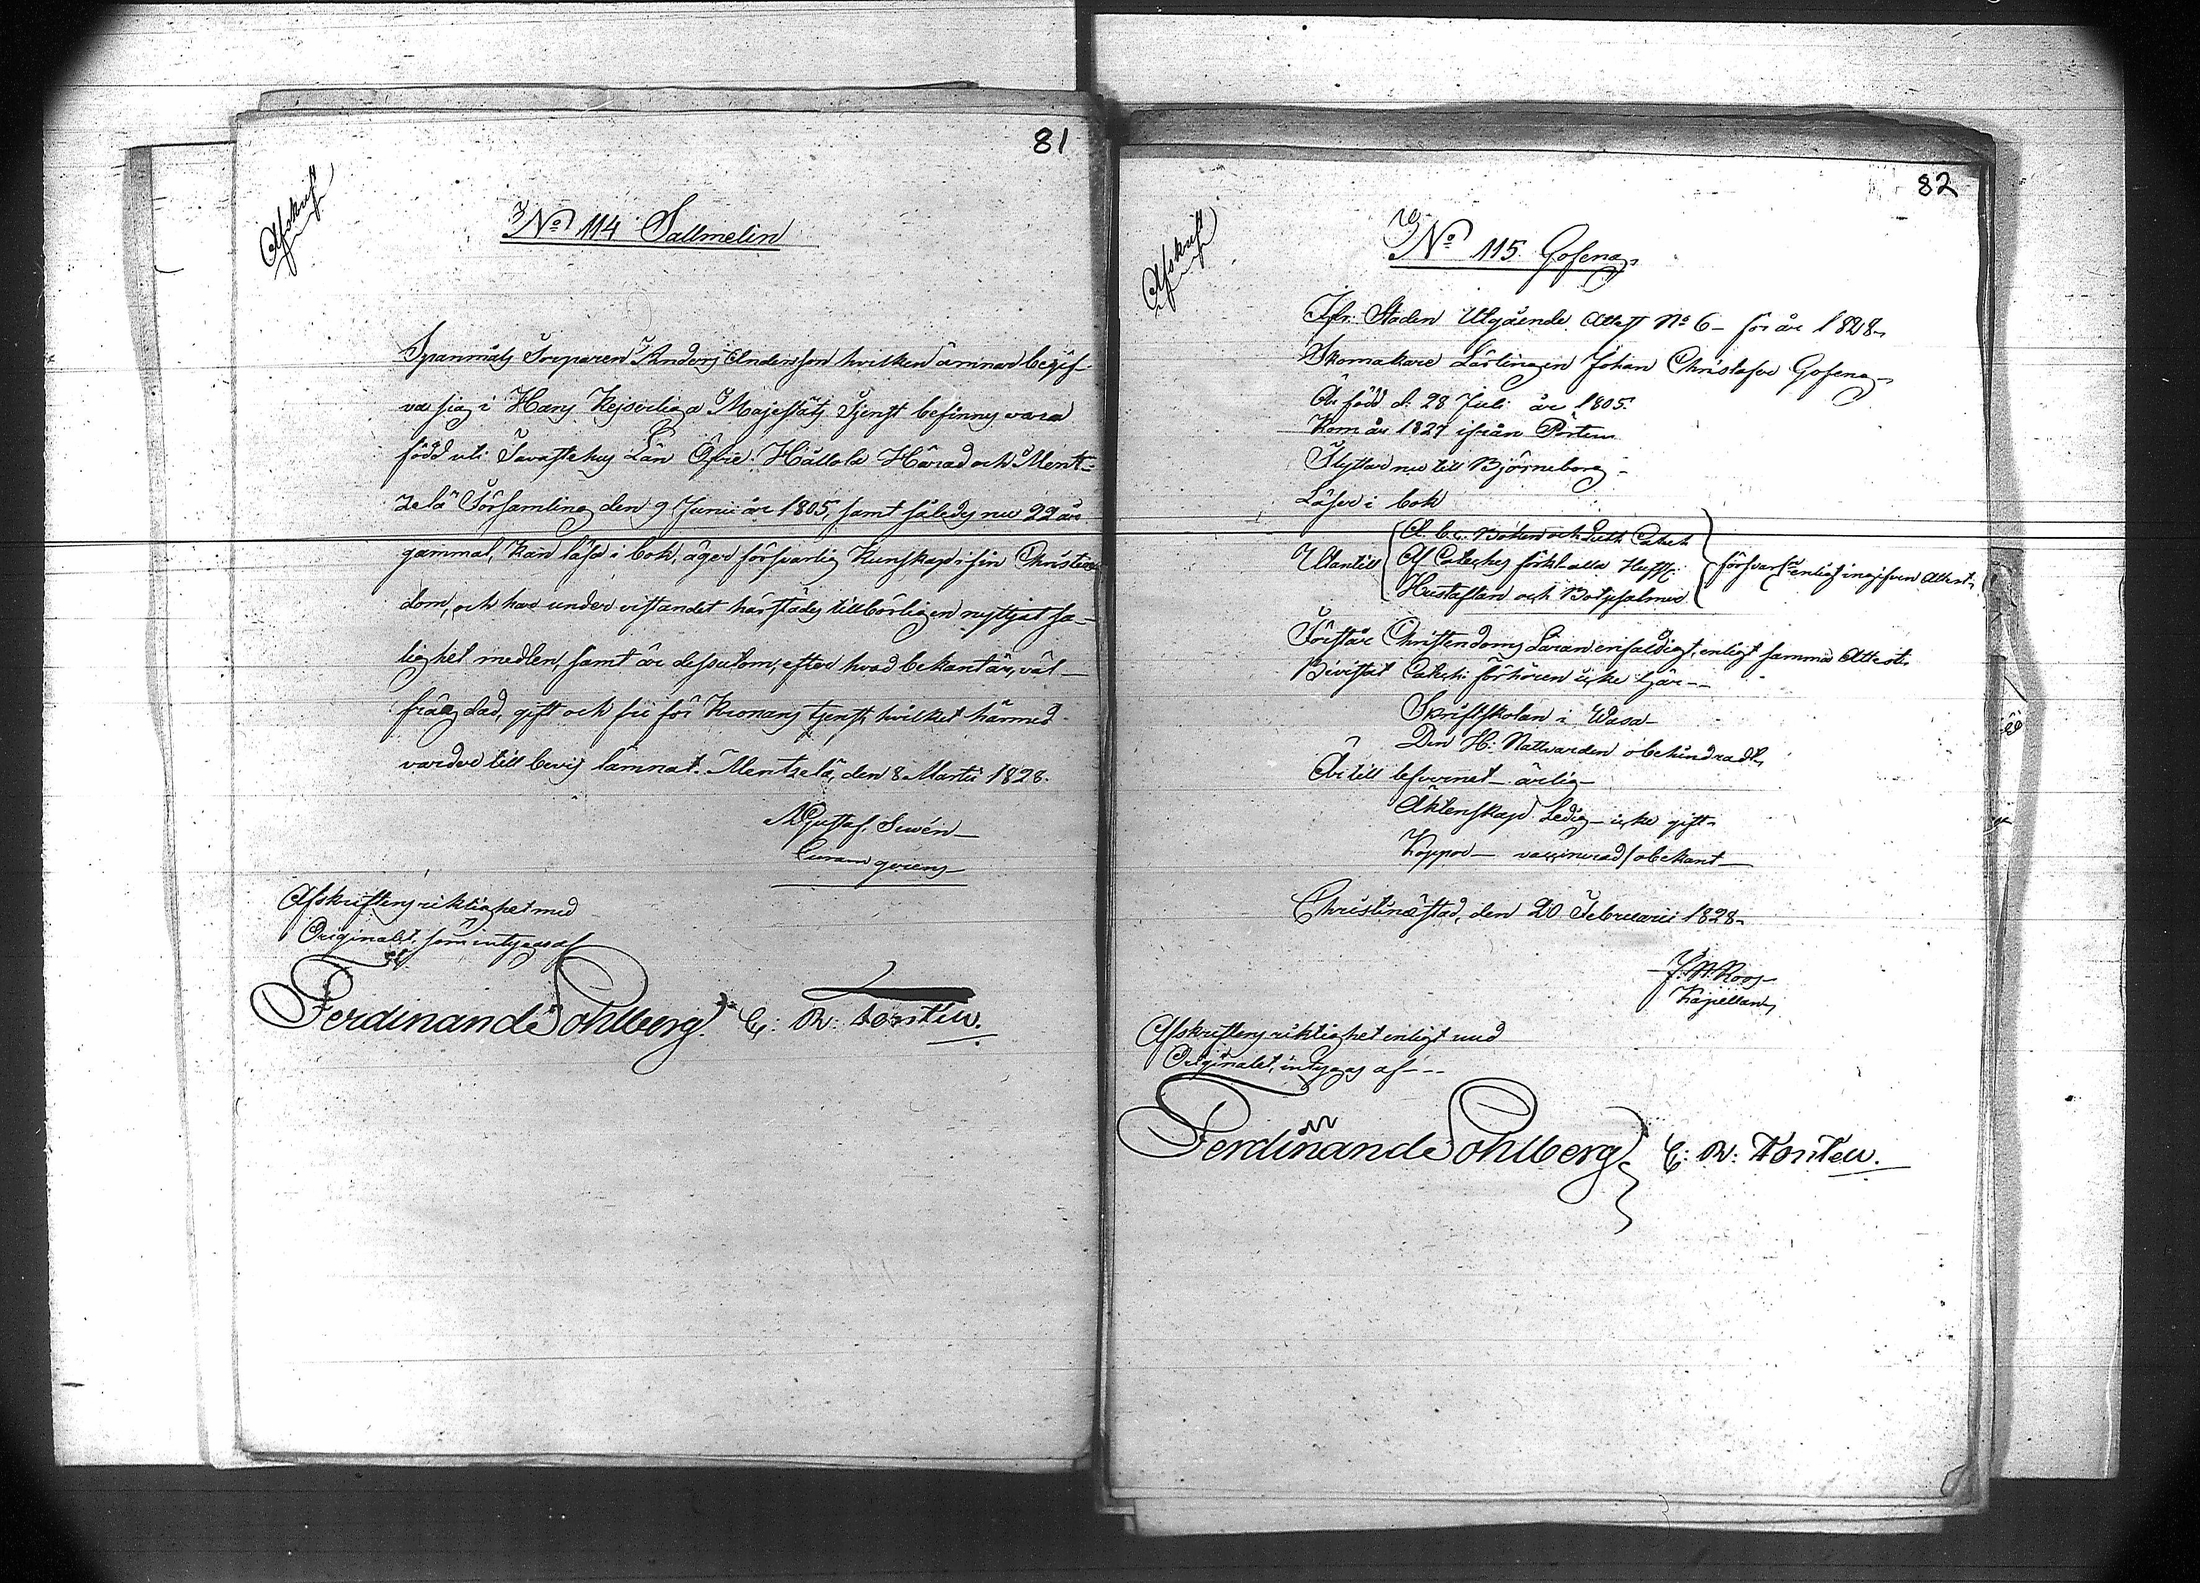 81
Afskrift
No 114 Sallmelin
Spanmåls Torparen Anders Andersson hvilken ämnar begif-
va sig i Hans Kejserliga Majestäts Tjenst befinnes vara
född uti Tavastehus Län Öfre Hållola Härad och Ment-
zelä Församling den 9 Junii år 1805, samt således nu 22 år
gammal, kan läsa i bok, äger försvarlig kunskap i sin Christen
dom, och har under vistandet härstädes tillbörligen nyttjat sa-
lighet medlen, samt är dessutom, efter hvad bekant är, väl
frägdad, gift och fri för Kronans tjenst, hvilket härmed
varder till bevis lämnat. Mentzelä, den 8 Martii 1828.
Gustaf Swén
Curam gerens
Afskriftens riktighet med
Originalet, som intygas af
Ferdinand Sohlberg. C: R:
82
Afskrift
No 115 Gosena
Ifr. Staden Utgående Attest No 6 för år 1828
Skomakare Lärlingen Johan Christofer Gosena
Är född d. 28 Juli år 1805.
Kom år 1827 ifrån
Flyttar nu till Björneborg
Läser i bok
Utantill
A. b. c. Boken och Luth. Catech
Af Cateches förklar.
Hustaflan och Botpsalmer
försvarl. enligt ingifven Attest
Förstår Christendoms Läran enfaldigt, enligt samma Attest
Bivistat Catech: förhören icke här
Skriftskolan i Wasa
Den H: Nattvarden obehindradt
Är till lefvernet ärlig
Äktenskap Ledig icke gift
Koppor vaccinerad obekant
Christinæstad, den 20 Februarii 1828
Roos
Kapellan
Afskriftens riktighet enligt med
Originalet, intygas af
Ferdinand Sohlberg C: R: